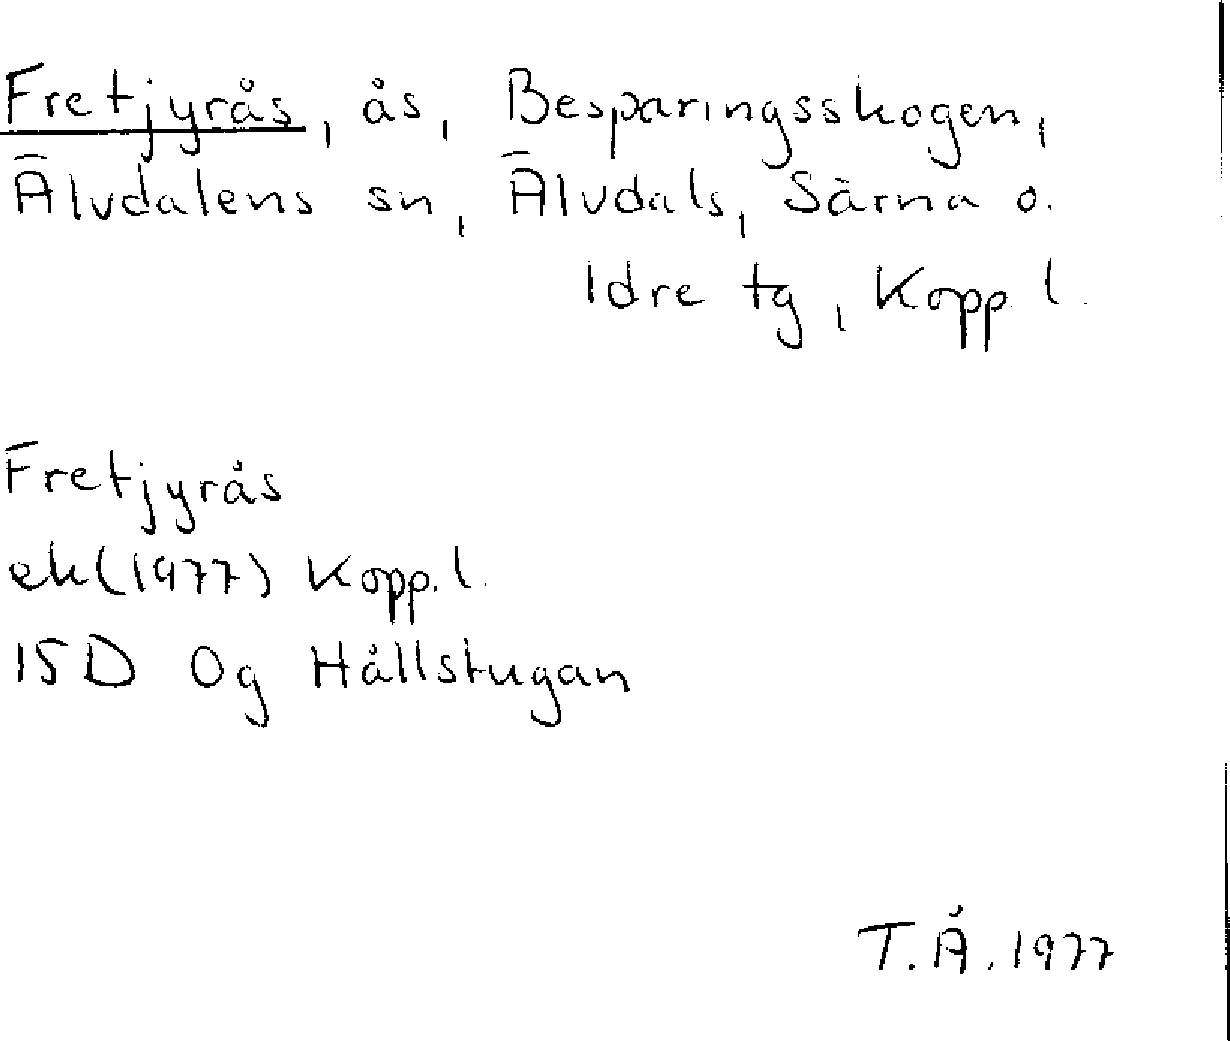 Fretjyrås, ås, Besparingsskogen,
Älvdalens sn, Älvdals, Särna o.
Idre tg, Kopp. l.
Fretjyrås
ek (1977) Kopp. l.
15D 0g Hållstugan
T.Å. 1977